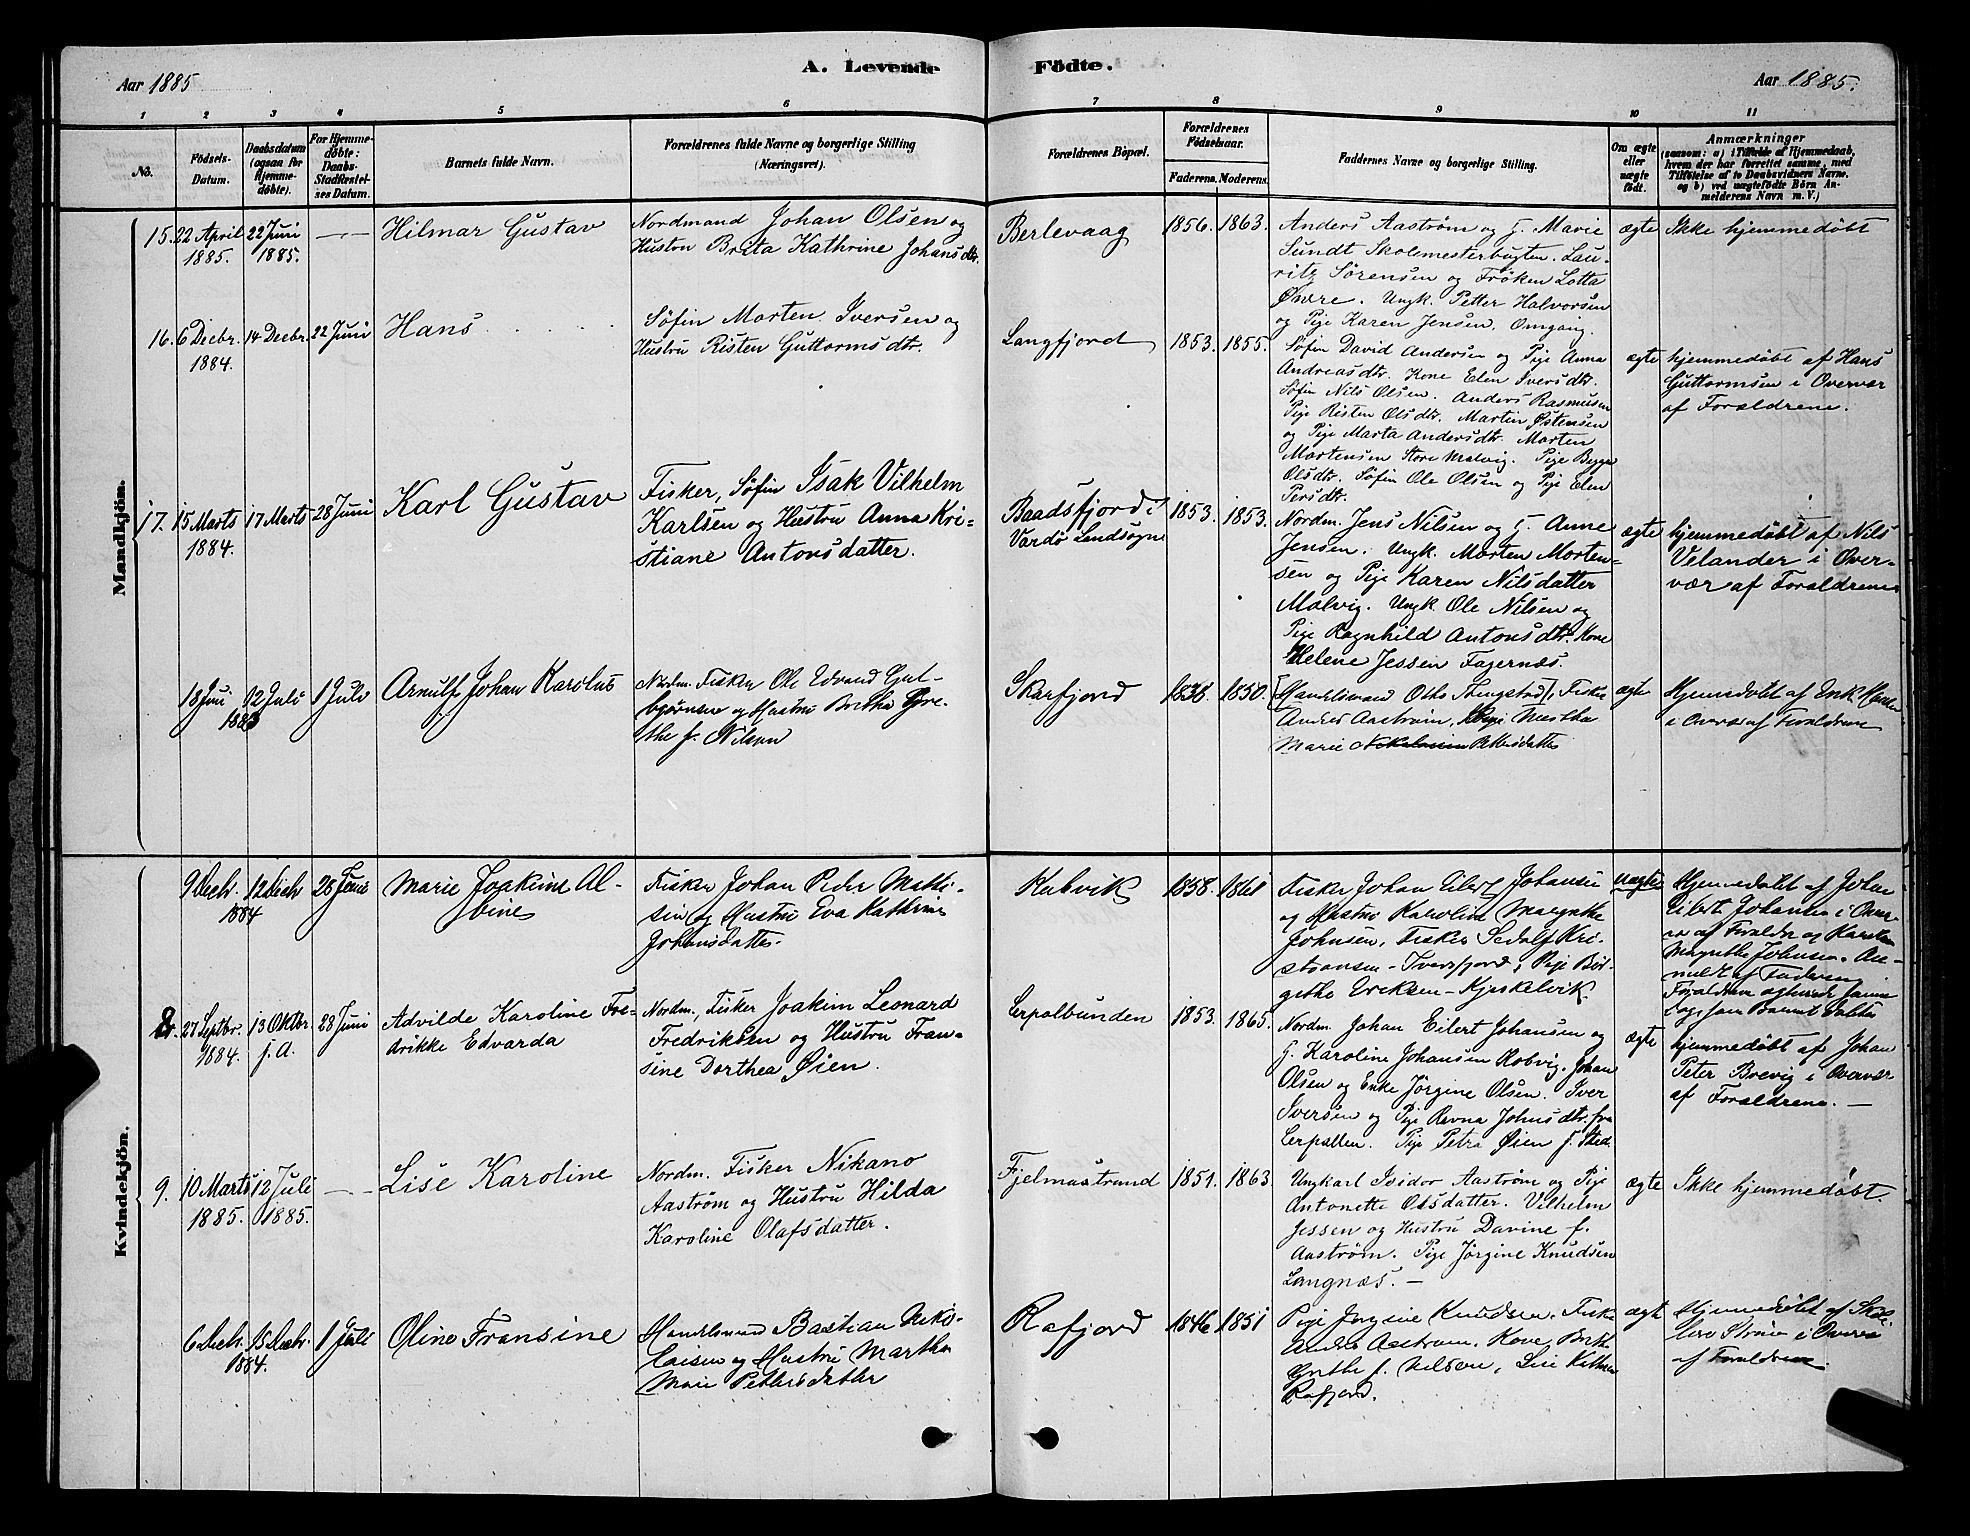 Aar 1885
A. Levende
Födte.
Aar 1885.
1 2 3 4 5 6 7 8 9 10 11
No.
Födsels-
Datum.
Daabsdatum
(ogsaa for
Hjemme-
döbte).
For Hjemme-
döbte:
Daabs-
Stadfæstel-
ses Datum.
Barnets fulde Navn.
Forældrenes fulde Navne og borgerlige Stilling
(Næringsvei).
Forældrenes Bopæl.
Forældrenes
Födselsaar.
Faderens. Moderens.
Faddernes Navne og borgerlige Stilling.
Om ægte
eller
uægte
födt.
Anmærkninger
(saasom: a) i Tilfælde af Hjemmedaab,
hvem der har forrettet samme, med
Tilföielse af to Daabsvidners Navne.
og b) ved uægtefödte Börn An-
melderens Navn m. V.)
Mandkjön.
15. 22 April
1885.
22 Juni
1885.
Hilmar Gustav
Nordmand Johan Olsen og
Hustru Brita Kathrine Johansdtr.
Berlevaag
1856. 1863.
Anders Aaström og f. Marie
Sundt Skolemesterbugten. Lau-
ritz Sörensen og Fröken Lotta
Øwre. Ungk. Petter Halvorsen
og Pige Karen Jensen. Omgang.
ægte
Ikke hjemmedöbt
16. 6 Decbr.
1884.
14 Decbr.
22 Juni
Hans
Söfin Morten Iversen og
Hustru Risten Guttormsdtr.
Langfjord
1853. 1855.
Söfin David Andersen og Pige Anna
Andreasdtr. Kone Elen Iversdtr.
Söfin Nils Olsen. Anders Rasmusen
Pige Risten Olsdtr. Martin Østensen
og Pige Marta Andersdtr. Morten
Mortensen Store Molvig. Pige Berge
Olsdtr. Söfin Ole Olsen og Pige Elen
Persdtr.
ægte
hjemmedöbt af Hans
Guttormsen i Overvær
af Forældrene.
17. 15 Marts
1884.
17 Marts
28 Juni
Karl Gustav
Fisker, Söfin Isak Vilhelm
Karlsen og Hustru Anna Kri-
stiane Antonsdatter.
Baadsfjord i
Vardö Landsogn
1853. 1853.
Nordm. Jens Nilsen og f. Anne
Jensen. Ungk. Morten Morten-
sen og Pige Karen Nilsdatter
Molvig. Ungk. Ole Nilsen og
Pige Ragnhild Antonsdtr. Kone
Helene Jessen Fagernæs.
ægte
hjemmedöbt af Nils
Velander i Over-
vær af Forældrene
18 Juni
1883
12 Juli
1 Juli
Arnulf Johan Karolus
Nordm. Fisker Ole Edvard Gut-
björnsen og Hustru Brethe Gre-
the f. Nilsen
Skarfjord
1838. 1850.
Handelsmand Otto Stengstad, Fisker
Anders Aaström, Pige Martha
Marie Pettersdatter
ægte
Hjemmedöbt af Enk. Hansen
i Overvær af Forældrene
Kvindekjön.
9 Decbr.
1884
12 Decbr
28 Juni
Marie Joakime Al-
bine
Fisker Johan Peder Mathi-
sen og Hustru Eva Kathrine
Johansdatter.
Kobvik
1858. 1861
Fisker Johan Eilert Johansen
og Hustru Karoline Margrethe
Johnsen, Fisker Sedolf Kri-
stiansen - Iversfjord; Pige Bir-
gethe Eriksen - Kjeskelvik.
uægte
Hjemmedöbt af Johan
Eilert Johansen i Over-
vær af Foreldre og Karoline
Magrethe Johnsen. An-
meldt af Faderen
8. 27 Septbr.
1884.
13 Oktbr.
f. A.
28 Juni
Advilde Karoline Fre-
drikke Edvarda
Nordm. Fisker Joakim Leonard
Fredriksen og Hustru Fran-
sine Dorthea Øien.
Lerpolbunden
1853. 1865.
Nordm. Johan Eilert Johansen og
f. Karoline Johansen Kobvig. Johan
Olsen og Enke Jörgine Olsen. Iver
Iversen og Pige Ravna Johnsdtr. fra
Lerpollen. Pige Petra Øien f. Sted.
ægte
hjemmedöbt af Johan
Peter Brevig i Overvær
af Forældrene. —
9. 10 Marts
1885.
12 Juli
1885.
Lise Karoline
Nordm. Fisker Nikano
Aaström og Hustru Hilda
Karoline Olafsdatter.
Fjelmastrand
1851. 1863
Ungkarl Isidor Aaström og Pige
Antonette Olsdatter. Vilhelm
Jessen og Hustru Davine f.
Aaström. Pige Jörgine Knudsen
Langnæs. —
ægte
Ikke hjemmedöbt.
6 Decbr.
1884.
15 Decbr.
1 Juli
Oline Fransine
Handelsmand Bastian Niko-
laisen og Hustru Martha
Marie Pettersdatter
Rafjord
1846 1851
Pige Jörgine Knudsen. Fisker
Anders Aaström. Kone Brithe
Grethe f. Nilsen, Lise Kathrine
Rafjord.
ægte
Hjemmedöbt af Skole-
lærer Ström i Overvær
af Forældrene.